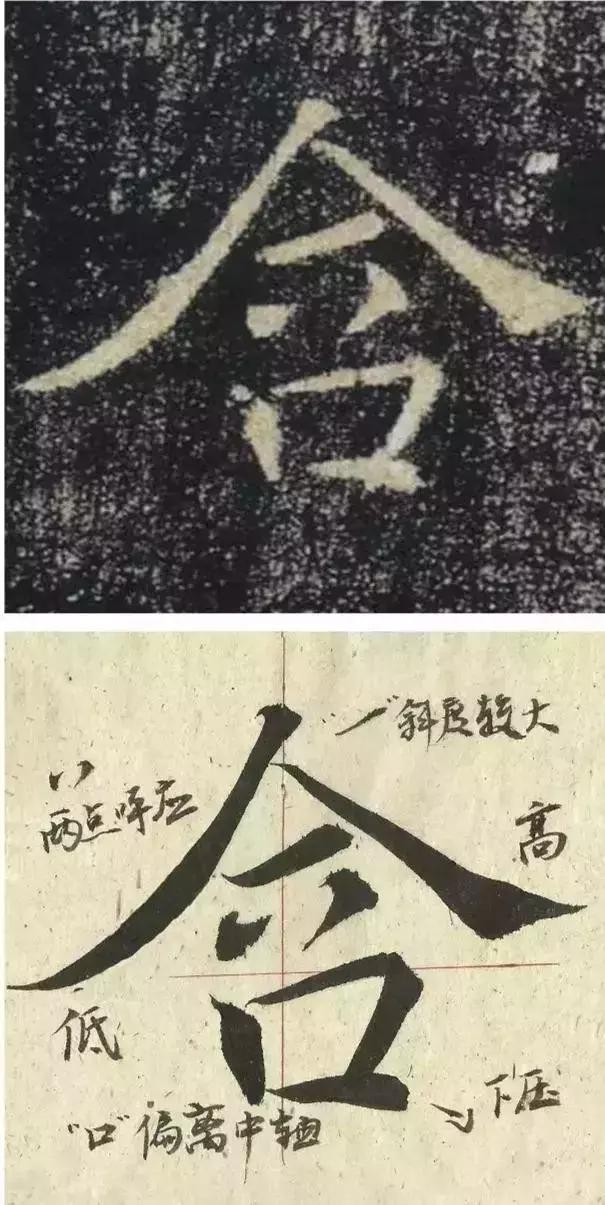 含
斜度较大
两点呼应
高
含
低
下压
"口"偏离中轴